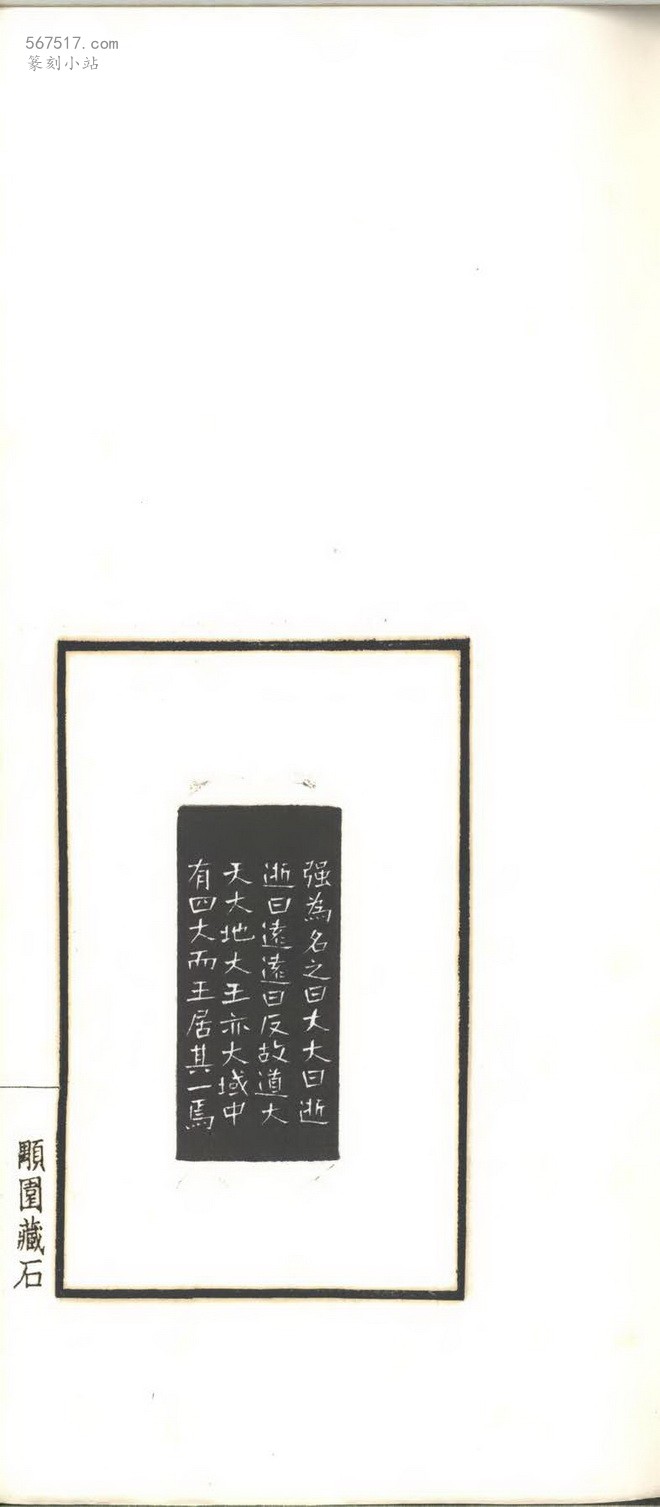 567517.com
篆刻小站
强為名之曰大大曰逝
逝曰遠遠曰反故道大
天大地大王亦大域中
有四大而王居其一焉
顒園藏石